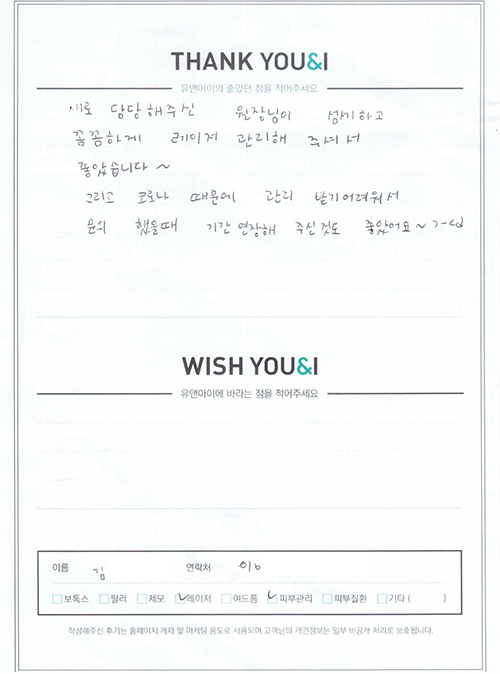 THANK YOU&I
유앤아이의 좋았던 점을 적어주세요
새로 담당해주신 원장님이 섬세하고
꼼꼼하게 레이저 관리해 주셔서
좋았습니다~
그리고 코로나 때문에 관리 받기어려워서
문의 했을때 기간 연장해 주신것도 좋았어요~
WISH YOU&I
유앤아이에 바라는 점을 적어주세요
이름 김 연락처 010
보톡스 필러 제모 레이저 여드름 피부관리 피부질환 기타 ( )
작성해주신 후기는 홈페이지 게재 및 마케팅 용도로 사용되며 고객님의 개인정보는 일부 비공개 처리로 보호됩니다.